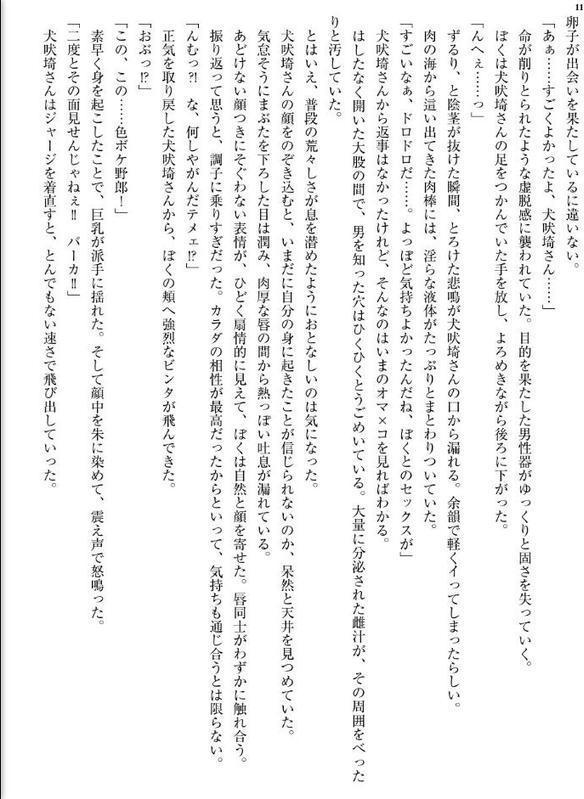 11
卵子が出会いを果たしているに違いない。
「あぁ……すごくよかったよ、犬吠埼さん……」
命が削りとられたような虚脱感に襲われていた。目的を果たした男性器がゆっくりと固さを失っていく。
ぼくは犬吠埼さんの足をつかんでいた手を放し、よろめきながら後ろに下がった。
「んへぇ……っ」
ずるり、と陰茎が抜けた瞬間、とろけた悲鳴が犬吠埼さんの口から漏れる。余韻で軽くイってしまったらしい。
肉の海から這い出てきた肉棒には、淫らな液体がたっぷりとまとわりついていた。
「すごいなぁ、ドロドロだ……。よっぽど気持ちよかったんだね、ぼくとのセックスが」
犬吠埼さんから返事はなかったけれど、そんなのはいまのオマ×コを見ればわかる。
はしたなく開いた大股の間で、男を知った穴はひくひくとうごめいている。大量に分泌された雌汁が、その周囲をべった
りと汚していた。
とはいえ、普段の荒々しさが息を潜めたようにおとなしいのは気になった。
犬吠埼さんの顔をのぞき込むと、いまだに自分の身に起きたことが信じられないのか、呆然と天井を見つめていた。
気怠そうにまぶたを下ろした目は潤み、肉厚な唇の間から熱っぽい吐息が漏れている。
あどけない顔つきにそぐわない表情が、ひどく扇情的に見えて、ぼくは自然と顔を寄せた。唇同士がわずかに触れ合う。
振り返って思うと、調子に乗りすぎだった。カラダの相性が最高だったからといって、気持ちも通じ合うとは限らない。
「んむっ?!　な、何しやがんだテメェ!?」
正気を取り戻した犬吠埼さんから、ぼくの頬へ強烈なビンタが飛んできた。
「おぶっ!?」
「この、この……色ボケ野郎！」
素早く身を起こしたことで、巨乳が派手に揺れた。そして顔中を朱に染めて、震え声で怒鳴った。
「二度とその面見せんじゃねぇ!!　バーカ!!」
犬吠埼さんはジャージを着直すと、とんでもない速さで飛び出していった。